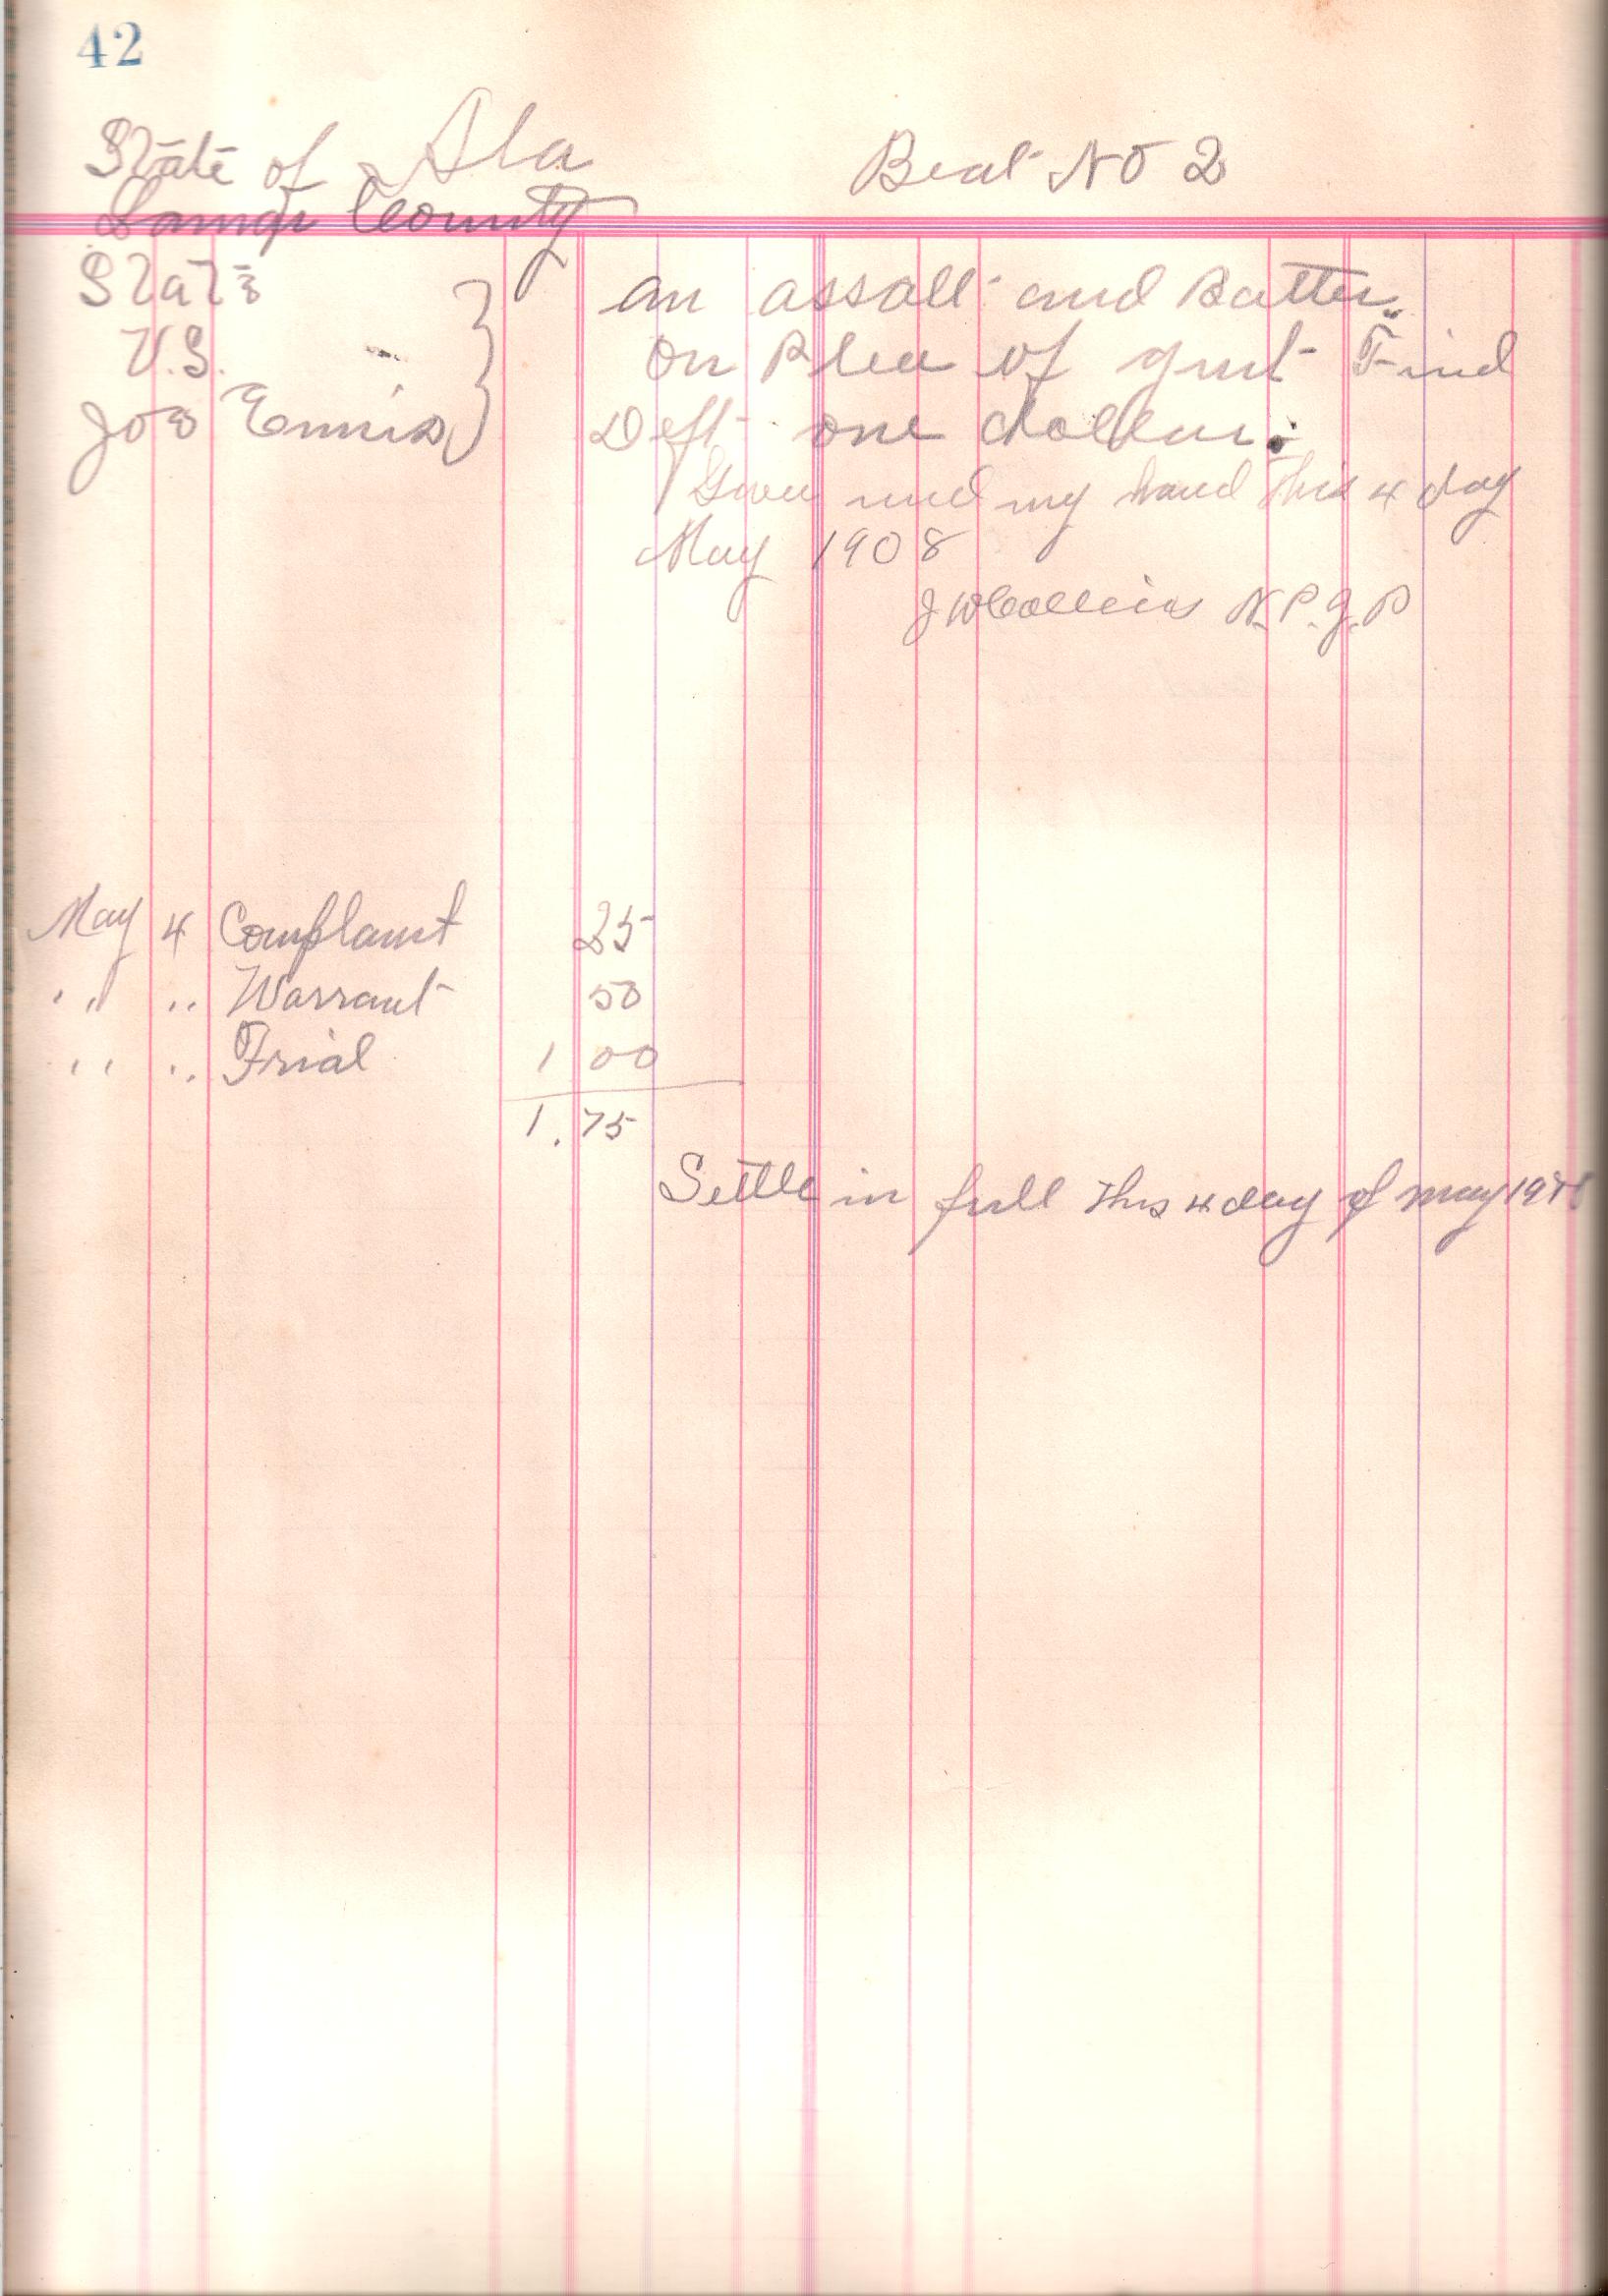 42
State of Ala Beat No 2
Lamar County
State
V.S.
Joe Ennis
an assalt and Batter
on Plea of guit Find
Deft one dollar.
Given und my hand this 4 day
May 1908
J W Collins N.P.J.P
May 4 Complaint 25
" " Warrant 50
" " Trial 1 00
1.75
Settle in full this 4 day of may 1908